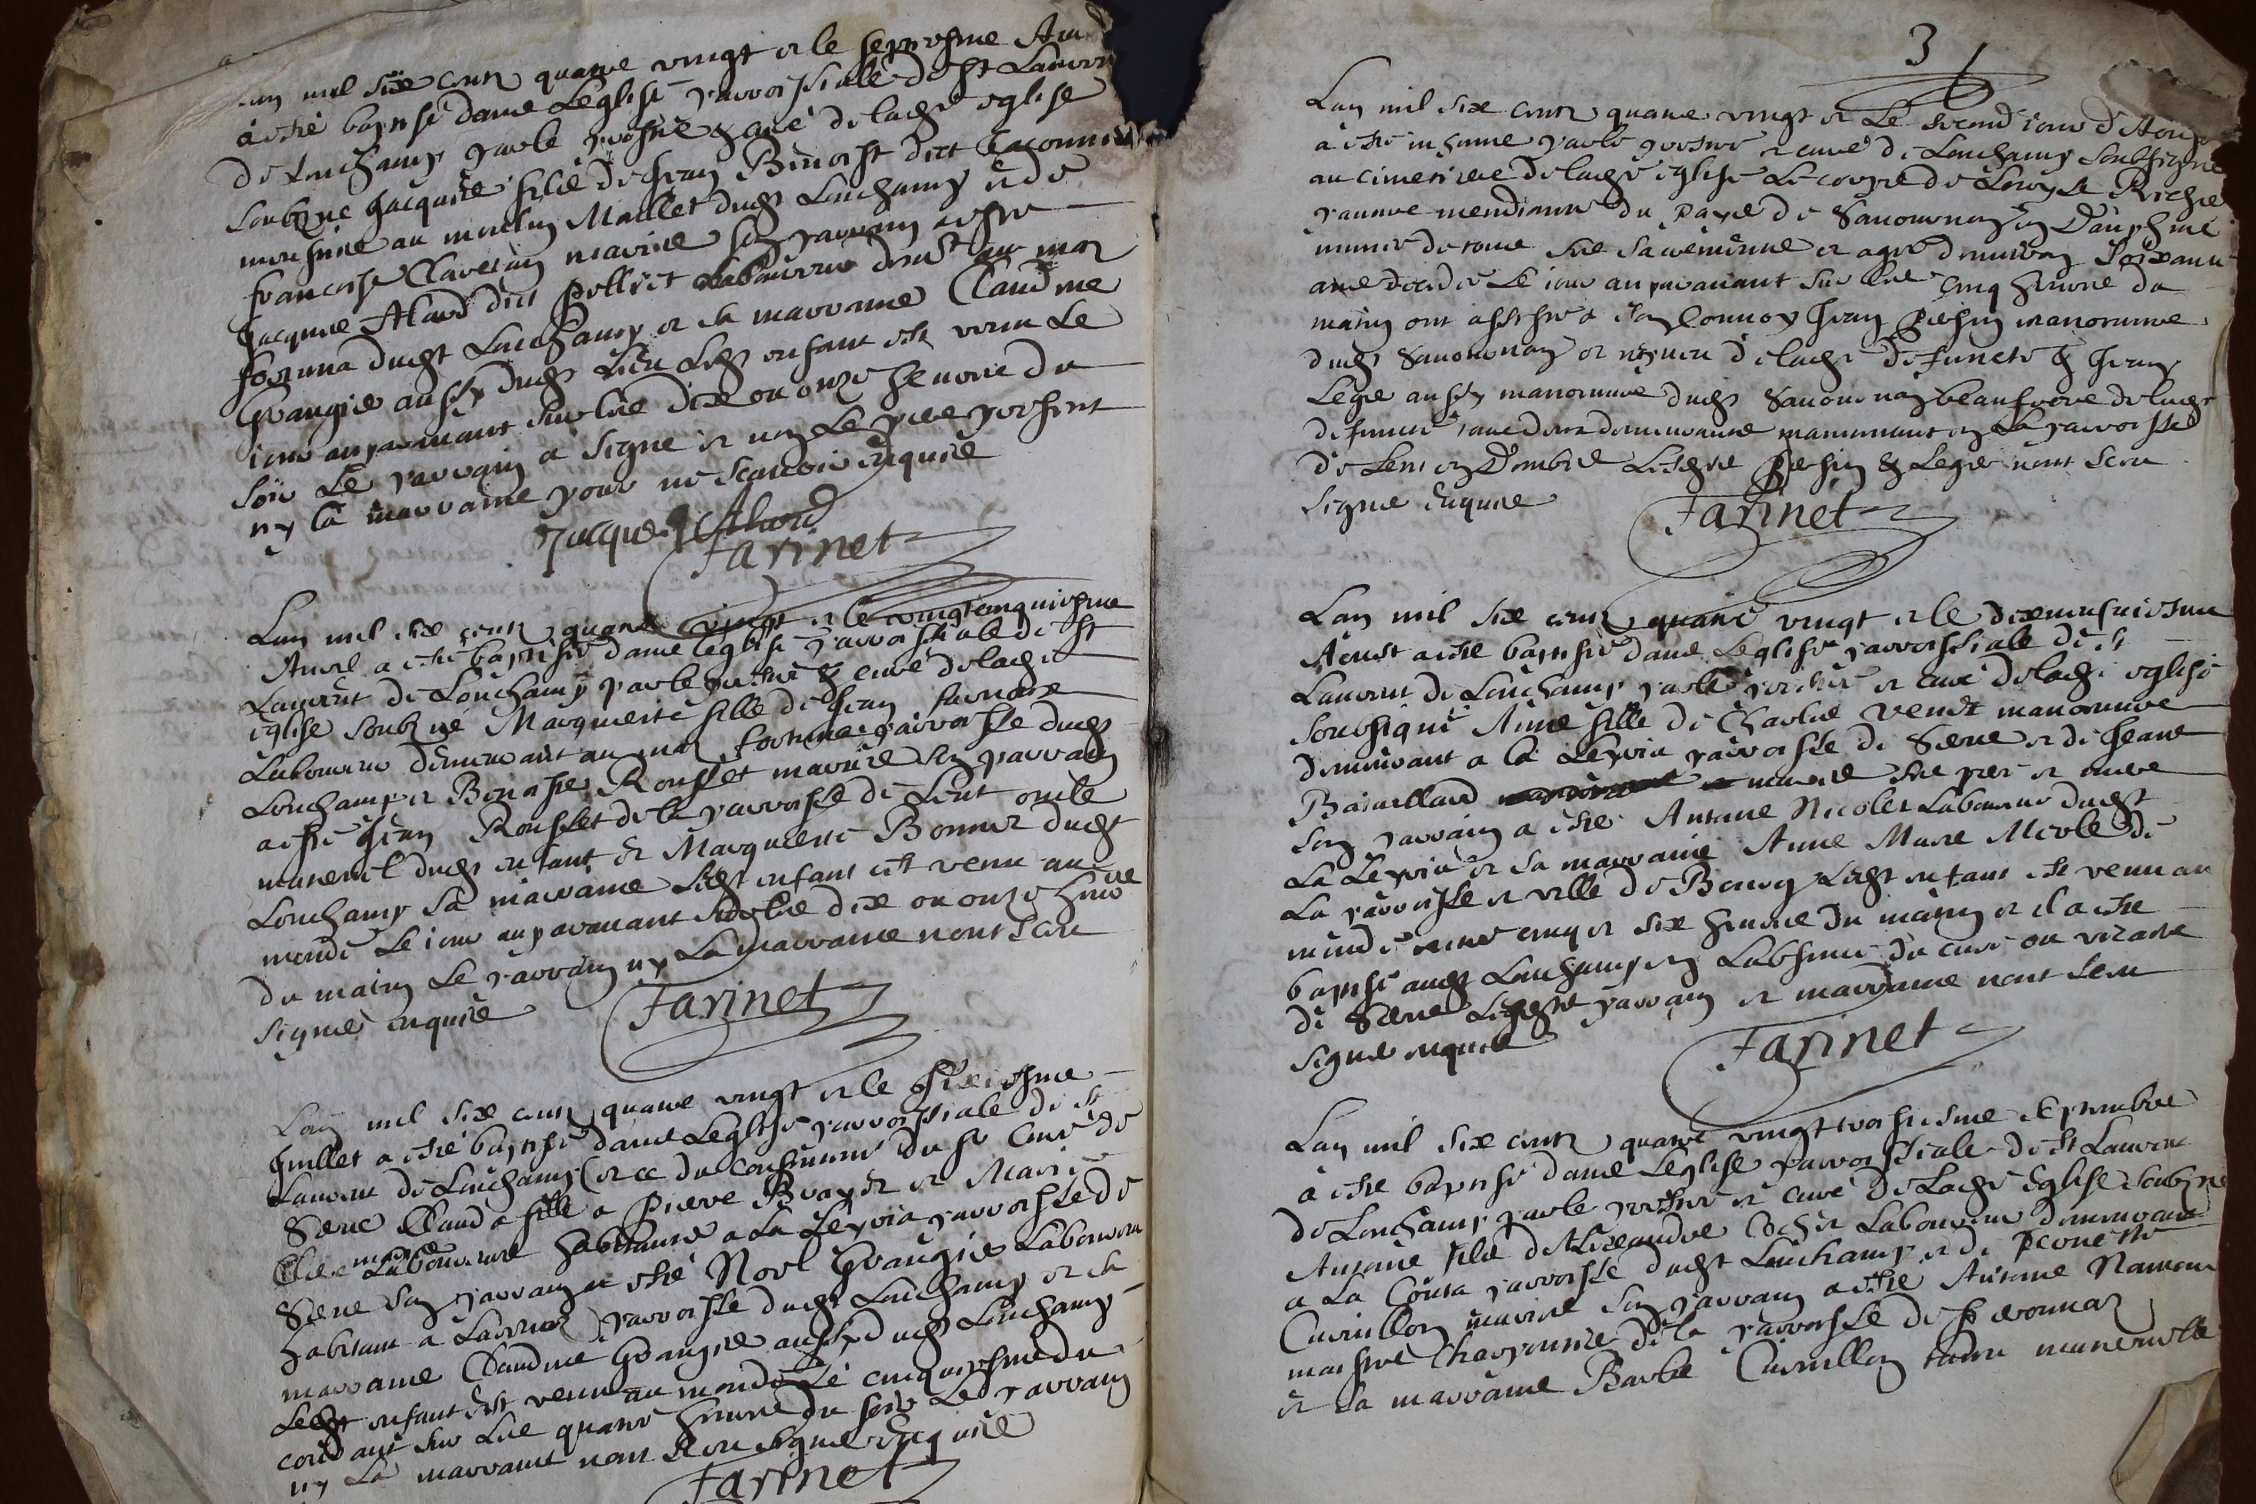 Lan mil six cents quatre vingt et le septiesme Avr
a esté baptisé dans Leglise parroissiale de St Lauren
de Lonchamp par le prestre & curé de ladte eglise
soubzne Jacques fils de Jean Benoist dict
monsnier au moulin Mallet dudt Lonchamp et de
francoise Claveran mariés son parrain a esté
Jacques Alard dict pollict Laboureur demt au mas
fortuna dudt Lonchamp et la marraine Claudine
Grangie aussy dudt Lieu Ledt enfant est venu Le
iour auparavant sur les dix ou onze heures du
soir Le parrain a signe et non Le pere present
ny la marraine pour ne scavoir enquis
Jacques Alard
Farinet
Lan mil six cents quatre vingt et le vingtcinquiesme
Avril a esté baptisée dans leglise parroissiale de St
Laurent de Lonchamp par le prestre & curé de ladte
eglise soubzné Marguerite fille de Jean
Laboureur demeurant au mas fortuna parroisse dudt
Lonchamp et Benoiste Rousset mariés son parrain
a esté Jean Rousset de la parroisse de Lent oncle
maternel dudt enfant et Marguerite Bonnet dudt
Lonchamp sa marraine Ledt enfant est venu au
monde Le iour auparavant sur les dix ou onze heures
du matin Le parrain ny La marraine nont sceu
signer enquis
Farinet
Lan mil six cents quatre vingt et le sixiesme
Juillet a esté baptisé dans Leglise parroissiale de St
Laurent de Lonchamp (et ce du consentement du sr Curé de
Serve Clauda fille a Pierre Broyer et Marie
mariés
Laboureurs habitants a La Leyria parroisse de
Serve son parrain a esté Noel Grangie Laboureur
habitant a parroisse dudt Lonchamp et la
marraine Claudine Grangie aussy dudt Lonchamp
Ledt enfant est venu au monde Le cinquiesme du
courant sur Les quatre heures du soir Le parrain
ny La marraine nont sceu signer enquis
Farinet
3
Lan mil six cents quatre vingt et Le second iour dAoust
a esté inhumé par le prestre et curé de Lonchamp soubsigné
au cimetiere de ladte eglise Le corps de Louys Le Riche
pauvre mendiant du pays de Savournon en Dauphine
munie de tous ses sacrements et agé denviron soixante
ans decede Le iour auparavant sur les cinq heures du
matin ont assisté a son convoy Jean Pessin manouvrier
dudt Savournon et nepveu de ladte defuncte & Jean
Legre aussy manouvrier dudt Savournon beaufrere de ladte
defuncte tous deux demeurants maintenant en La parroisse
de Lent en Dombes Lesdts Pessin & Legre nont sceu
signer Enquis
Farinet
Lan mil six cents quatre vingt et le dixneufviesme
Aoust a esté baptisée dans Leglise parroissiale de St
Laurent de Lonchamp par le prestre et curé de ladte eglise
soubsigné Anne fille de Charles Venet manouvrier
demeurant a la Leyria parroisse de Serve et de Jeane
Bataillard mariés ses pere et mere
son parrain a esté Antoine Nicolet Laboureur dudt
La Leyria et sa marraine Anne Marie Nicole de
La parroisse et ville de Bourg Ledt enfant est venu au
monde entre cinq et six heures du matin et il a esté
baptisé audt Lonchamp en Labsence du curé ou vicaire
de Serve Lesdts parrain et marraine nont sceu
signer enquis
Farinet
Lan mil six cents quatre vingt troisiesme septembre
a esté baptisé dans Leglise parroissiale de St Laurent
de Lonchamp par le prestre et curé de Ladte Eglise soubzne
Antoine fils dAlexandre Cochet Laboureur demeurant
a La Cousa parroisse dudt Lonchamp et de Pernette
Curnillon mariés son parrain a esté Antoine
maistre charpentier de la parroisse de Peronnas
et la marraine Barbe Curnillon tante maternelle